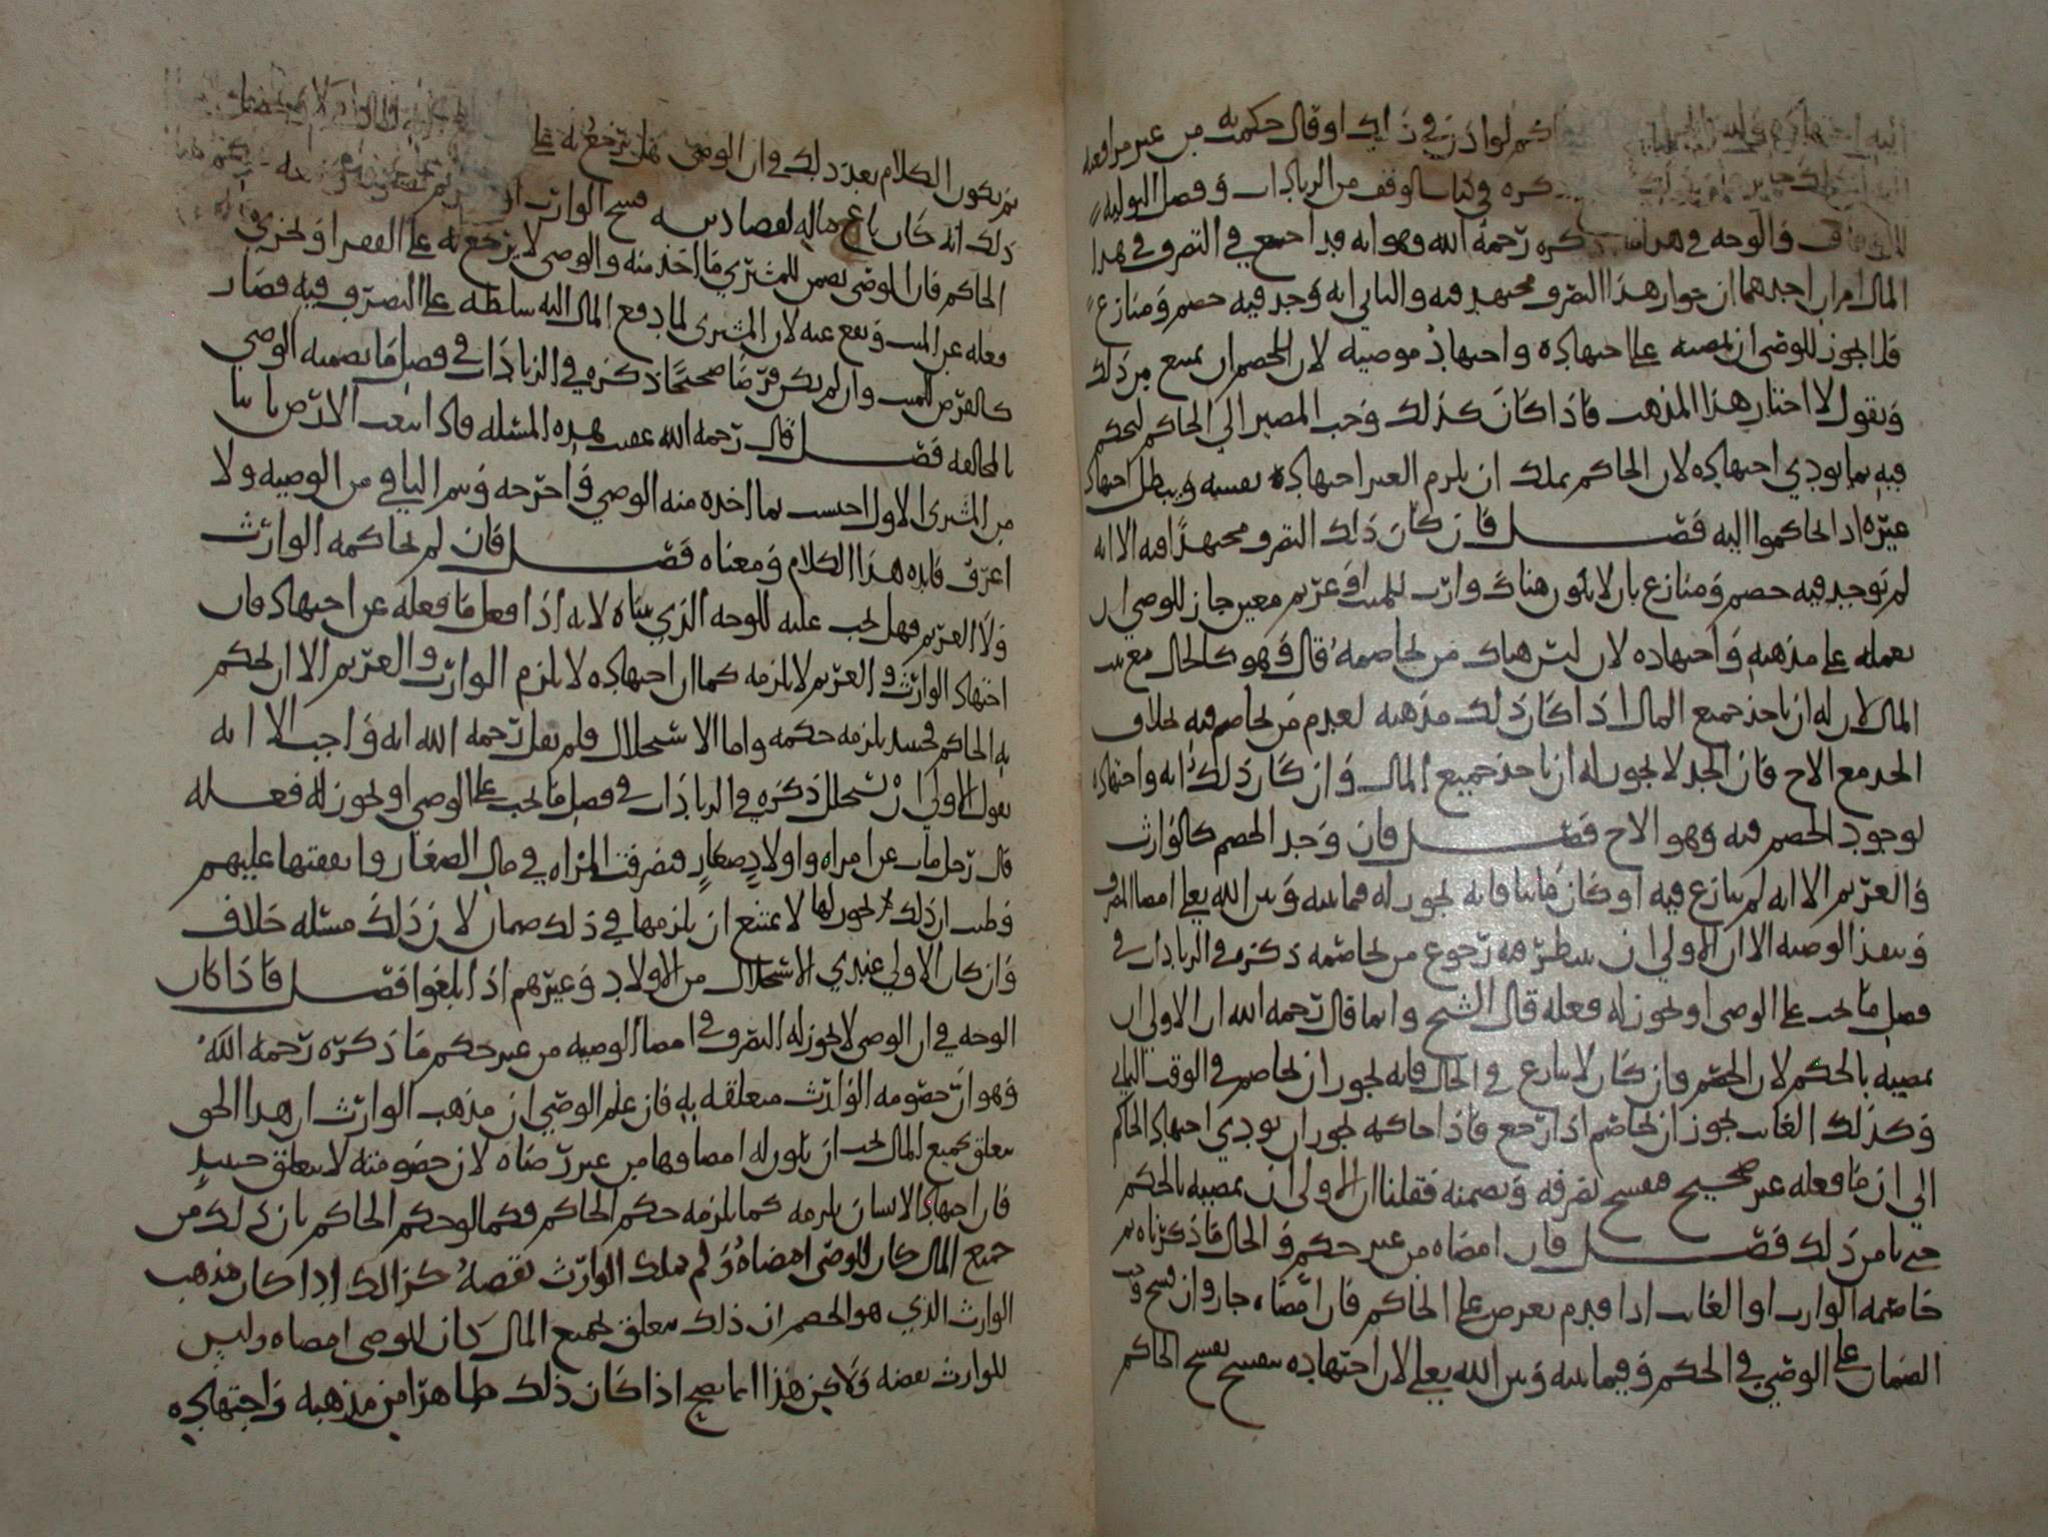 لو اذن في ذلك او قال حكمت به من غير مرافعه
ذكره في كتاب الوقف من الزيادات وفصل التوليه
والوجه في هذا ذكره رحمه الله وهو انه قد اجتمع في التصرف في هذا
المال امران احدهما ان جواز هذا التصرف مجتهد فيه والثاني انه وجد فيه خصم ومنازع
فلا يجوز للوصي ان يمضيه على اجتهاده واجتهاد موصيه لان للخصم ان يمنع من ذلك
ويقول لا اختار هذا المذهب فاذا كان كذلك وجب المصير الى الحاكم ليحكم
فيه بما يودي اجتهاده لان الحاكم يملك ان يلزم الغير اجتهاده بنفسه ويبطل اجتهاد
غيره اذا تحاكموا اليه فصل فان كان ذلك التصرف مجتهدا فيه الا انه
لم يوجد فيه خصم ومنازع بان لا يكون هناك وارث للميت او غريم معين جاز للوصي ان
يعمله على مذهبه واجتهاده لان ليس هناك من يخاصمه قال وهو كالحال مع بيت
المال لان له ان ياخذ جميع المال اذا كان ذلك مذهبه لعدم من يخاصم فيه بخلاف
الجد مع الاخ فان الجد لا يجوز له ان ياخذ جميع المال وان كان ذلك رايه واجتهاده
لوجود الخصم فيه وهو الاخ فصل فان وجد الخصم كالوارث
والغريم الا انه لم ينازع فيه او كان غايبا فانه يجوز له فيما بينه وبين الله تعالى امضا التصرف
وتنفيذ الوصيه الا ان الاولى ان ينتظر فيه رجوع من يخاصمه ذكره في الزيادات في
فصل ما يجب على الوصي او يجوز له فعله قال الشيخ وانما قال رحمه الله ان الاولى ان
يمضيه بالحكم لان الخصم وان كان لا ينازع في الحال فانه يجوز ان يخاصم في الوقت الثاني
وكذلك الغائب يجوز ان يخاصم اذا رجع فاذا حاكمه يجوز ان يودي اجتهاد الحاكم
الى ان ما فعله غير صحيح فيفسخ تصرفه ويضمنه فقلنا ان الاولى ان يمضيه بالحكم
حتى يامن ذلك فصل فان امضاه من غير حكم في الحال ما ذكرناه ثم
خاصمه الوارث او الغائب اذا قدم يعرض على الحاكم فان امضاه جاز وان فسخ وجب
الضمان على الوصي في الحكم وفيما بينه وبين الله تعالى لان اجتهاده ينفسخ بفسخ الحاكم
ثم يكون الكلام بعد ذلك في ان الوصي هل يرجع به على
ذلك انه كان باع ماله لقضا دينه فسخ الوارث
الحاكم فان الوصي يضمن للمشتري ما اخذ منه والوصي لا يرجع به على الفقرا ويجزي
فعله عن الميت ويقع عنه لان المشتري لما دفع المال اليه سلطه على التصرف فيه فصار
كالقرض للميت وان لم يكن قرضا صحيحا ذكره في الزيادات في فصل ما يضمنه الوصي
بالمخالفه فصل قال رحمه الله عقيب هذه المسئله فاذا ابتعت الارض ثانيا
من المشتري الاول احتسب بما اخذه منه الوصي واخرجه وتمم الباقي من الوصيه ولا
اعرف فايده هذا الكلام ومعناه فصل فان لم يحاكمه الوارث
ولا الغريم فهل يجب عليه للوجه الذي بيناه لانه اذا فعل ما فعله عن اجتهاد فان
اجتهاد الوارث والغريم لا يلزمه كما ان اجتهاده لا يلزم الوارث والغريم الا ان يحكم
به الحاكم فحينئذ يلزمه حكمه واما الاستحلال فلم يقل رحمه الله انه واجب الا انه
يقول الاولى ان يستحلل ذكره في الزيادات في فصل ما يجب على الوصي او يجوز له فعله
قال رجل مات عن امراه واولاد صغار فتصرفت المراه في مال الصغار وانفقتها عليهم
وظنت ان ذلك يجوز لها لا يمتنع ان يلزمها في ذلك ضمان لان ذلك مسئله خلاف
وان كان الاولى عندي الاستحلال من الاولاد وغيرهم اذا بلغوا فصل فاذا كان
الوجه في ان الوصي لا يجوز له التصرف في امضا الوصيه من غير حكم ما ذكره رحمه الله
وهو ان خصومه الوارث متعلقه به فان علم الوصي ان مذهب الوارث ان هذا الحق
يتعلق بجميع المال يجب ان يكون له امضاوها من غير رضاه لان خصومته لا تتعلق حينئذ
فان اجتهاد الانسان يلزمه كما يلزمه حكم الحاكم فكما لو حكم الحاكم بان ذلك من
جميع المال كان للوصي امضاه ولم يملك الوارث نقضه كذلك اذا كان مذهب
الوارث الذي هو الخصم ان ذلك يتعلق بجميع المال كان للوصي امضاه وليس
للوارث نقضه ولاكن هذا انما يصح اذا كان ذلك ظاهرا من مذهبه واجتهاده